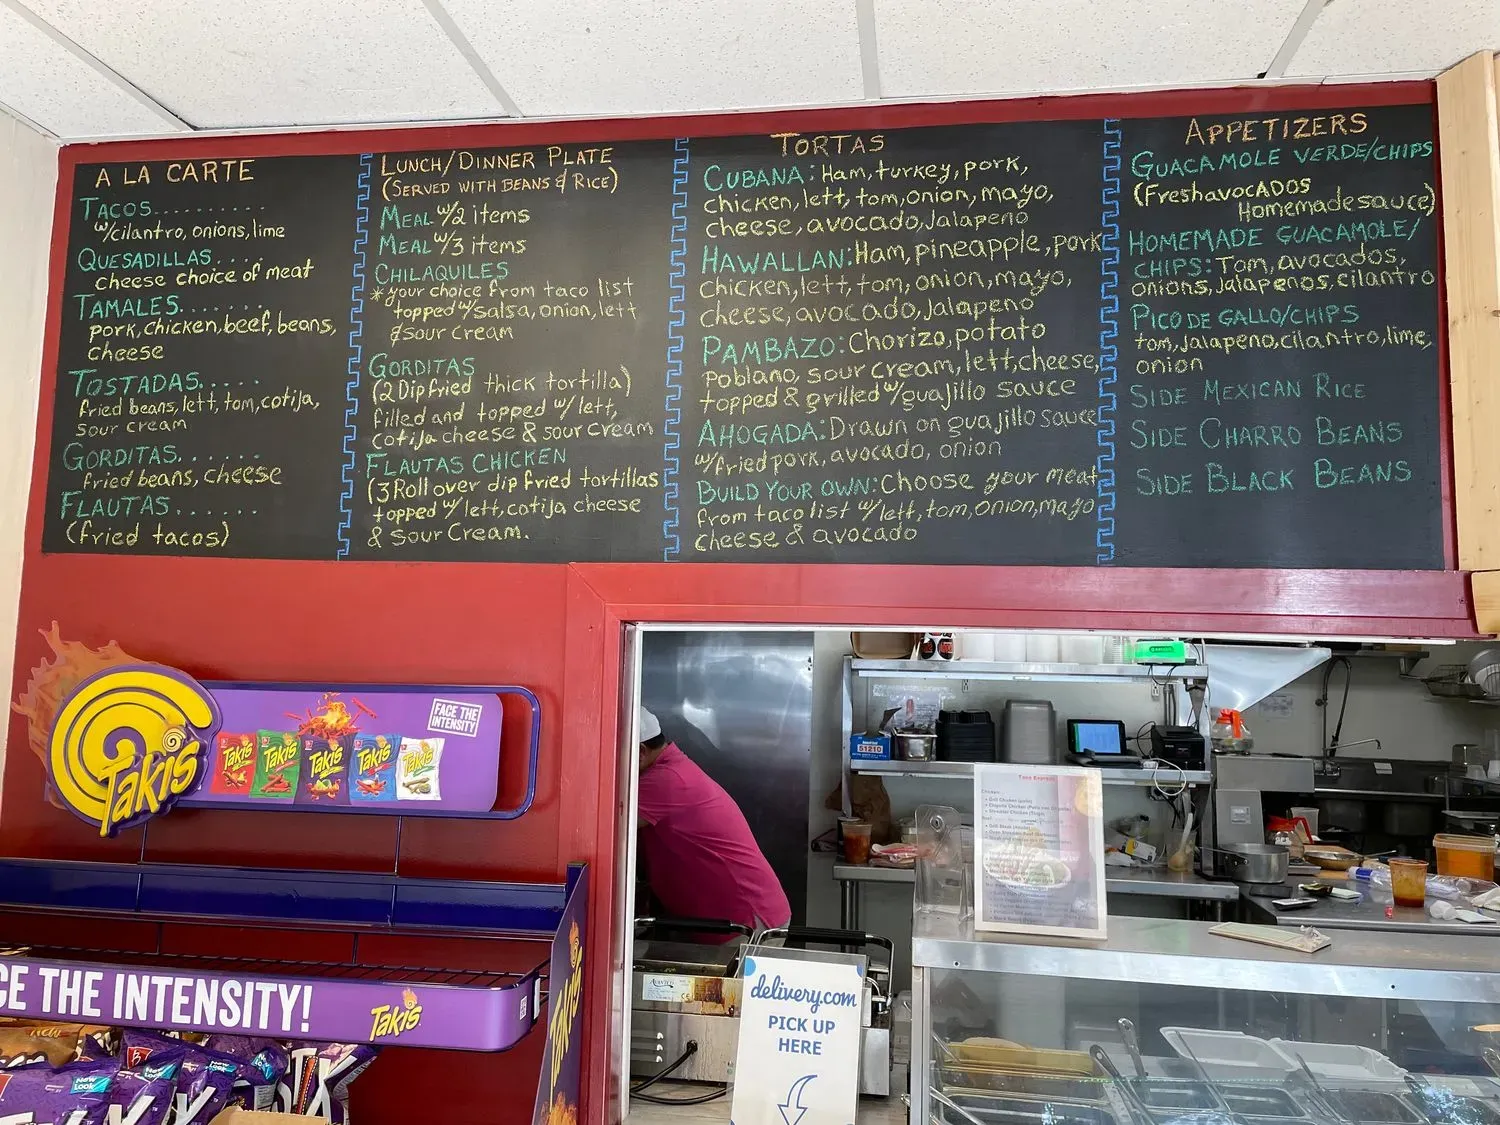 A LA CARTE
TACOS..........
w/cilantro, onions, lime
QUESADILLAS....
cheese choice of meat
TAMALES.......
pork, chicken, beef, beans,
cheese
TOSTADAS.....
fried beans, lett, tom, cotija,
sour cream
GORDITAS......
fried beans, cheese
FLAUTAS......
(fried tacos)
LUNCH/DINNER PLATE
(SERVED WITH BEANS & RICE)
MEAL w/2 items
MEAL w/3 items
CHILAQUILES
*your choice from taco list
topped w/salsa, onion, lett
& sour cream
GORDITAS
(2 Dip fried thick tortilla)
filled and topped w/ lett,
cotija cheese & sour cream
FLAUTAS CHICKEN
(3 Roll over dip fried tortillas
topped w/ lett, cotija cheese
& sour Cream.
TORTAS
CUBANA: Ham, turkey, pork,
chicken, lett, tom, onion, mayo,
cheese, avocado, Jalapeno
HAWALLAN: Ham, pineapple, pork
chicken, lett, tom, onion, mayo,
cheese, avocado, Jalapeno
PAMBAZO: Chorizo, potato
poblano, sour cream, lett, cheese,
topped & grilled w/guajillo sauce
AHOGADA: Drawn on guajillo sauce
w/fried pork, avocado, onion
BUILD YOUR OWN: Choose your meat
from taco list w/ lett, tom, onion, mayo
cheese & avocado
APPETIZERS
GUACAMOLE VERDE/CHIPS
(Fresh avocADOS
Homemade sauce)
HOMEMADE GUACAMOLE/
CHIPS: Tom, avocados,
onions, Jalapenos, cilantro
PICO DE GALLO/CHIPS
tom, Jalapeno, cilantro, lime,
onion
SIDE MEXICAN RICE
SIDE CHARRO BEANS
SIDE BLACK BEANS
Takis
FACE THE
INTENSITY
Takis Takis Takis Takis Takis
CE THE INTENSITY!
Takis
Takis
New
New Look
New Look
51210
Taco Express
Chicken:
Grill Chicken (pollo)
delivery.com
PICK UP
HERE